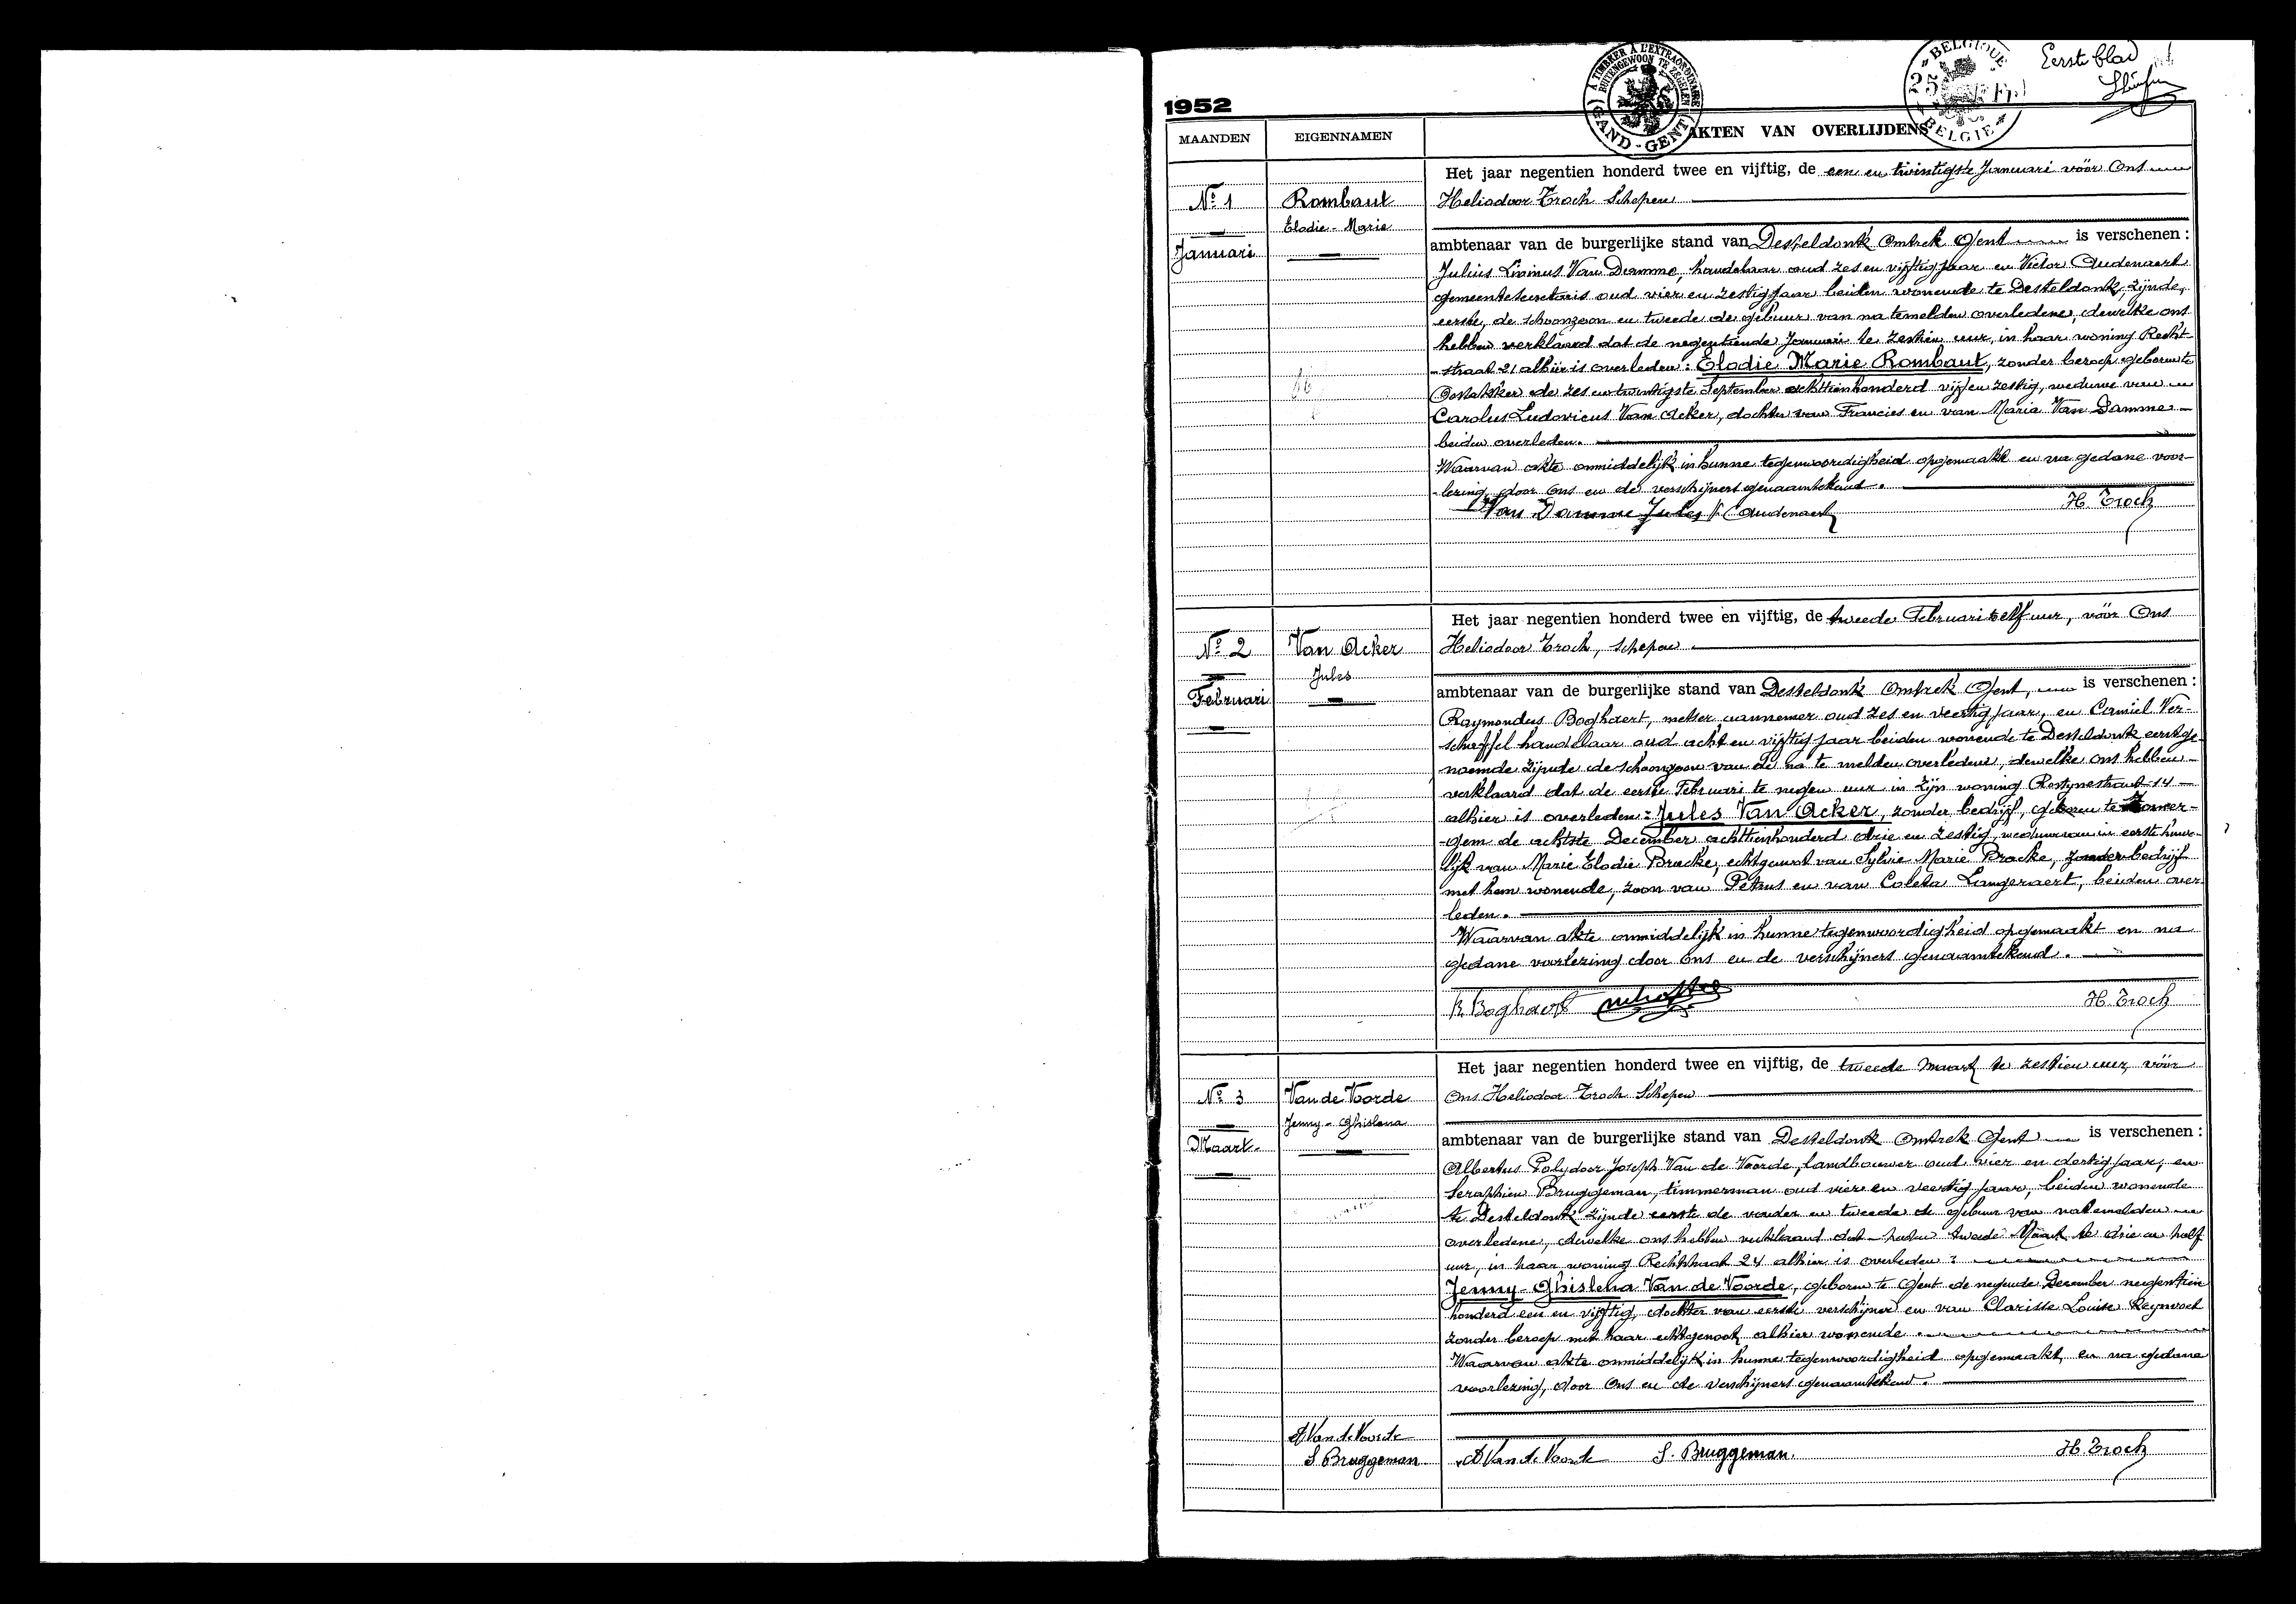 Eerste blad
1952
A TIMBRER À L'EXTRAORDINAIRE
BUITENGEWOON TE ZEGELEN
GAND - GENT
BELGIQUE
25
BELGIE
MAANDEN EIGENNAMEN AKTEN VAN OVERLIJDENS
No 1
Januari
Rombaut
Elodie - Marie
Het jaar negentien honderd twee en vijftig, de een en twintigste Januari vóór Ons
Heliodoor Troch Schepen
ambtenaar van de burgerlijke stand van Desteldonk Omtrek Gent is verschenen :
Julius Livinus Van Damme, handelaar oud zes en vijftig jaar en Victor Oudenaert
gemeentesecretaris oud vier en zestig jaar beiden wonende te Desteldonk, zijnde,
eerste, de schoonzoon en tweede de gebuur van na temelden overledene, dewelke ons
hebben verklaard dat de negentiende Januari te zestien uur, in haar woning Recht-
-straat 21 alhier is overleden : Elodie Marie Rombaut, zonder beroep geboren te
Oostakker de zes en twintigste September achttienhonderd vijf en zestig, weduwe van
Carolus Ludovicus Van Acker, dochter van Francies en van Maria Van Damme
beiden overleden.
Waarvan akte onmiddelijk in hunne tegenwoordigheid opgemaakt en na gedane voor-
-lezing, door Ons en de verschijners genaamtekend.
Van Damme Jules V. Oudenaert H. Troch
No 2
Februari
Van Acker
Jules
Het jaar negentien honderd twee en vijftig, de tweede Februari te elf uur, vóór Ons
Heliodoor Troch, schepen
ambtenaar van de burgerlijke stand van Desteldonk Omtrek Gent, is verschenen :
Raymondus Boghaert, metser aannemer oud zes en veertig jaar, en Camiel Ver-
schaffel handelaar oud acht en vijftig jaar beiden wonende te Desteldonk eerstge-
noemde zijnde de schoonzoon van de na te melden overledene, dewelke ons hebben
verklaard dat de eerste Februari te negen uur in zijn woning Rostijnestraat 14
alhier is overleden : Jules Van Acker, zonder bedrijf, geboren te Zomer-
-gem de achtste December achttienhonderd drie en zestig, weduwnaar in eerste huwe-
lijk van Marie Elodie Bracke, echtgenoot van Sylvie Marie Bracke, zonder bedrijf
met hem wonende, zoon van Petrus en van Coleta Langeraert, beiden over-
leden.
Waarvan akte onmiddelijk in hunne tegenwoordigheid opgemaakt en na
gedane voorlezing door Ons en de verschijners genaamtekend.
R. Boghaert H. Troch
No 3
Maart
Van de Voorde
Jenny - Ghislena
Het jaar negentien honderd twee en vijftig, de tweede Maart te zestien uur, vóór
Ons Heliodoor Troch Schepen
ambtenaar van de burgerlijke stand van Desteldonk Omtrek Gent is verschenen :
Albertus Polydoor Joseph Van de Voorde, landbouwer oud vier en dertig jaar, en
Seraphien Bruggeman, timmerman oud vier en veertig jaar, beiden wonende
te Desteldonk zijnde eerste de vader en tweede de gebuur van natemelden
overledene, dewelke ons hebben verklaard dat heden tweede Maart te drie en half
uur, in haar woning Rechtstraat 24 alhier is overleden :
Jenny - Ghislena Van de Voorde, geboren te Gent de negende December negentien
honderd een en vijftig, dochter van eerste verschijner en van Clarisse Louise Reynvoet
zonder beroep met haar echtgenoot alhier wonende.
Waarvan akte onmiddelijk in hunne tegenwoordigheid opgemaakt, en na gedane
voorlezing, door Ons en de verschijners genaamtekend.
A Van de Voorde
S. Bruggeman
A Van de Voorde S. Bruggeman. H. Troch